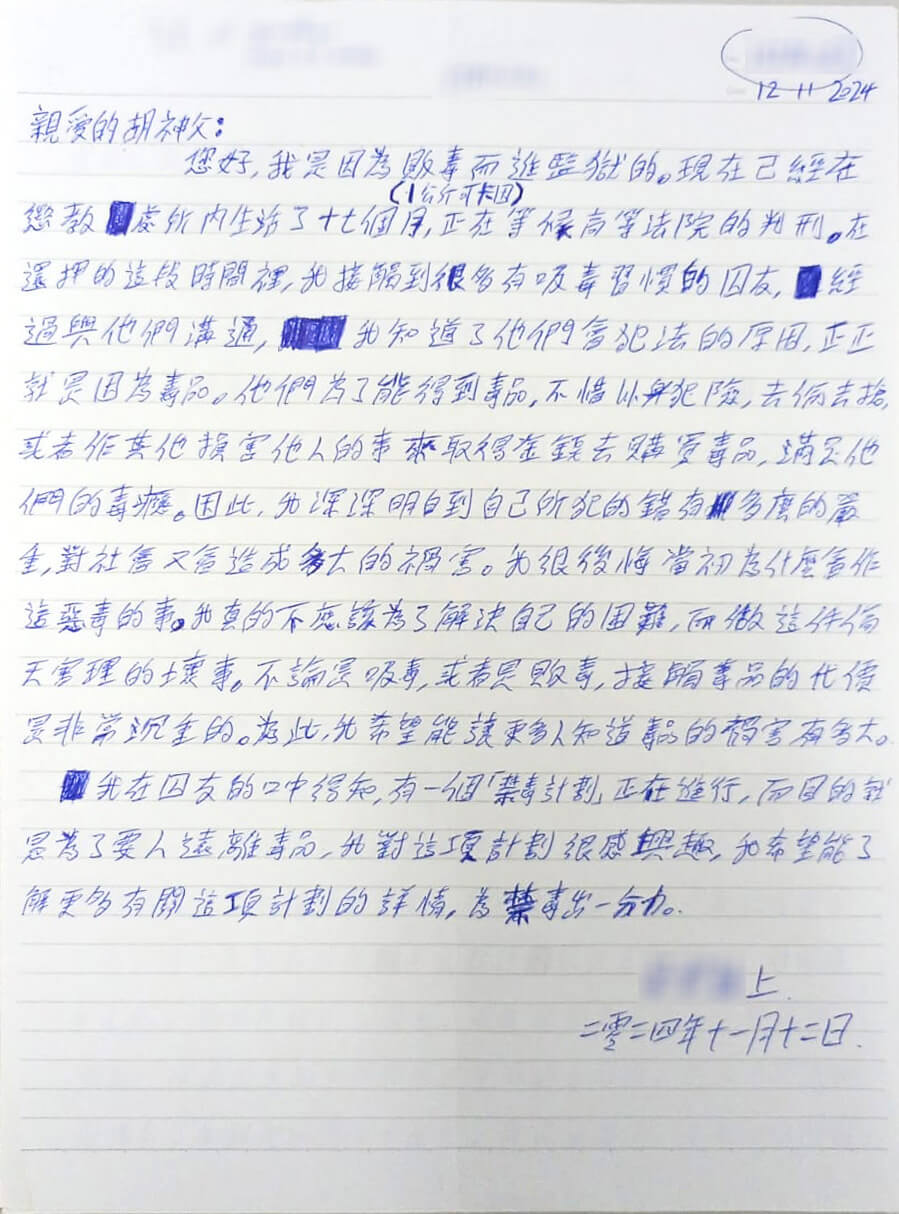 12-11-2024
親愛的胡神父：
您好，我是因為販毒而進監獄的。現在己經在
(1公斤可卡因)
懲教處所內生活了十七個月，正在等候高等法院的判刑。在
還押的這段時間裡，我接觸到很多有吸毒習慣的囚友，經
過與他們溝通，我知道了他們會犯法的原因，正正
就是因為毒品。他們為了能得到毒品，不惜以身犯險，去偷去搶，
或者作其他損害他人的事來取得金錢去購買毒品，滿足他
們的毒癮。因此，我深深明白到自己所犯的錯有多麼的嚴
重，對社會又會造成多大的禍害。我很後悔當初為什麼會作
這惡毒的事。我真的不應該為了解決自己的困難，而做這件傷
天害理的壞事。不論是吸毒，或者是販毒，接觸毒品的代價
是非常沉重的。為此，我希望能讓更多人知道毒品的禍害有多大。
我在囚友的口中得知，有一個「禁毒計劃」正在進行，而目的就
是為了要人遠離毒品，我對這項計劃很感興趣，我希望能了
解更多有關這項計劃的詳情，為禁毒出一分力。
上.
二零二四年十一月十二日.